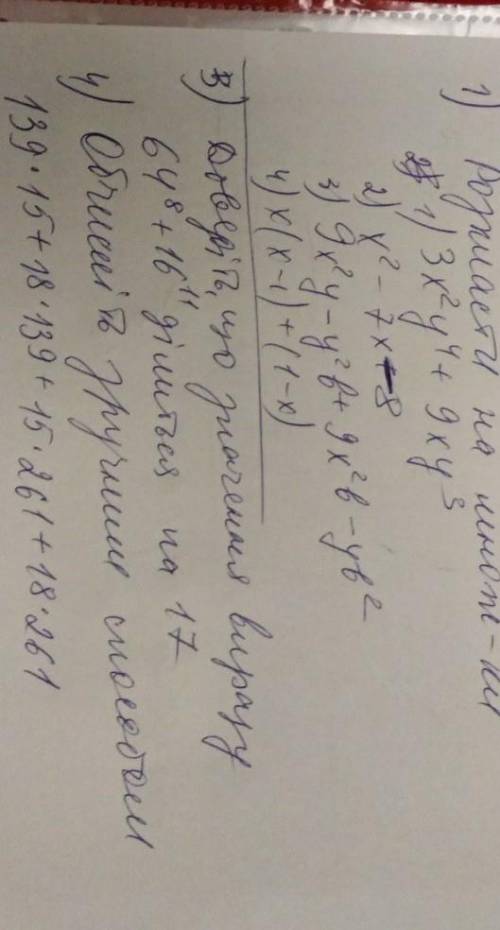 1) Розкласти на множ-ки
1) 3x²y⁴ + 9xy³
2) x² - 7x - 8
3) 9x²y - y²b + 9x²b - yb²
4) x(x-1) + (1-x)
3) Доведіть, що значення виразу
64⁸ + 16¹¹ ділиться на 17
4) Обчисліть зручним способом
139·15 + 18·139 + 15·261 + 18·261